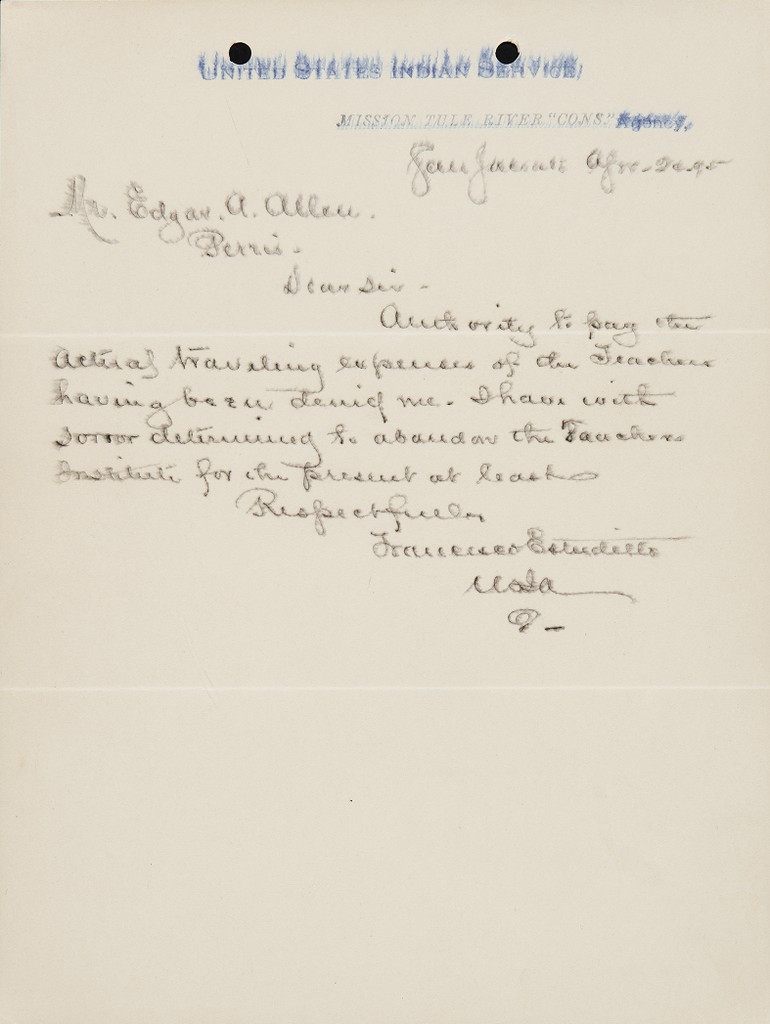 UNITED STATES INDIAN SERVICE,
MISSION TULE RIVER "CONS." Agency,
San Jacinto Apr-20-95
Mr. Edgar. A. Allen.
Perris-
Dear Sir-
Authority to pay the
actual traveling expenses of the Teachers
having been denied me. I have with
sorror determined to abandon the Teachers
Institute for the present at least
Respectfully
Francisco Estudillo